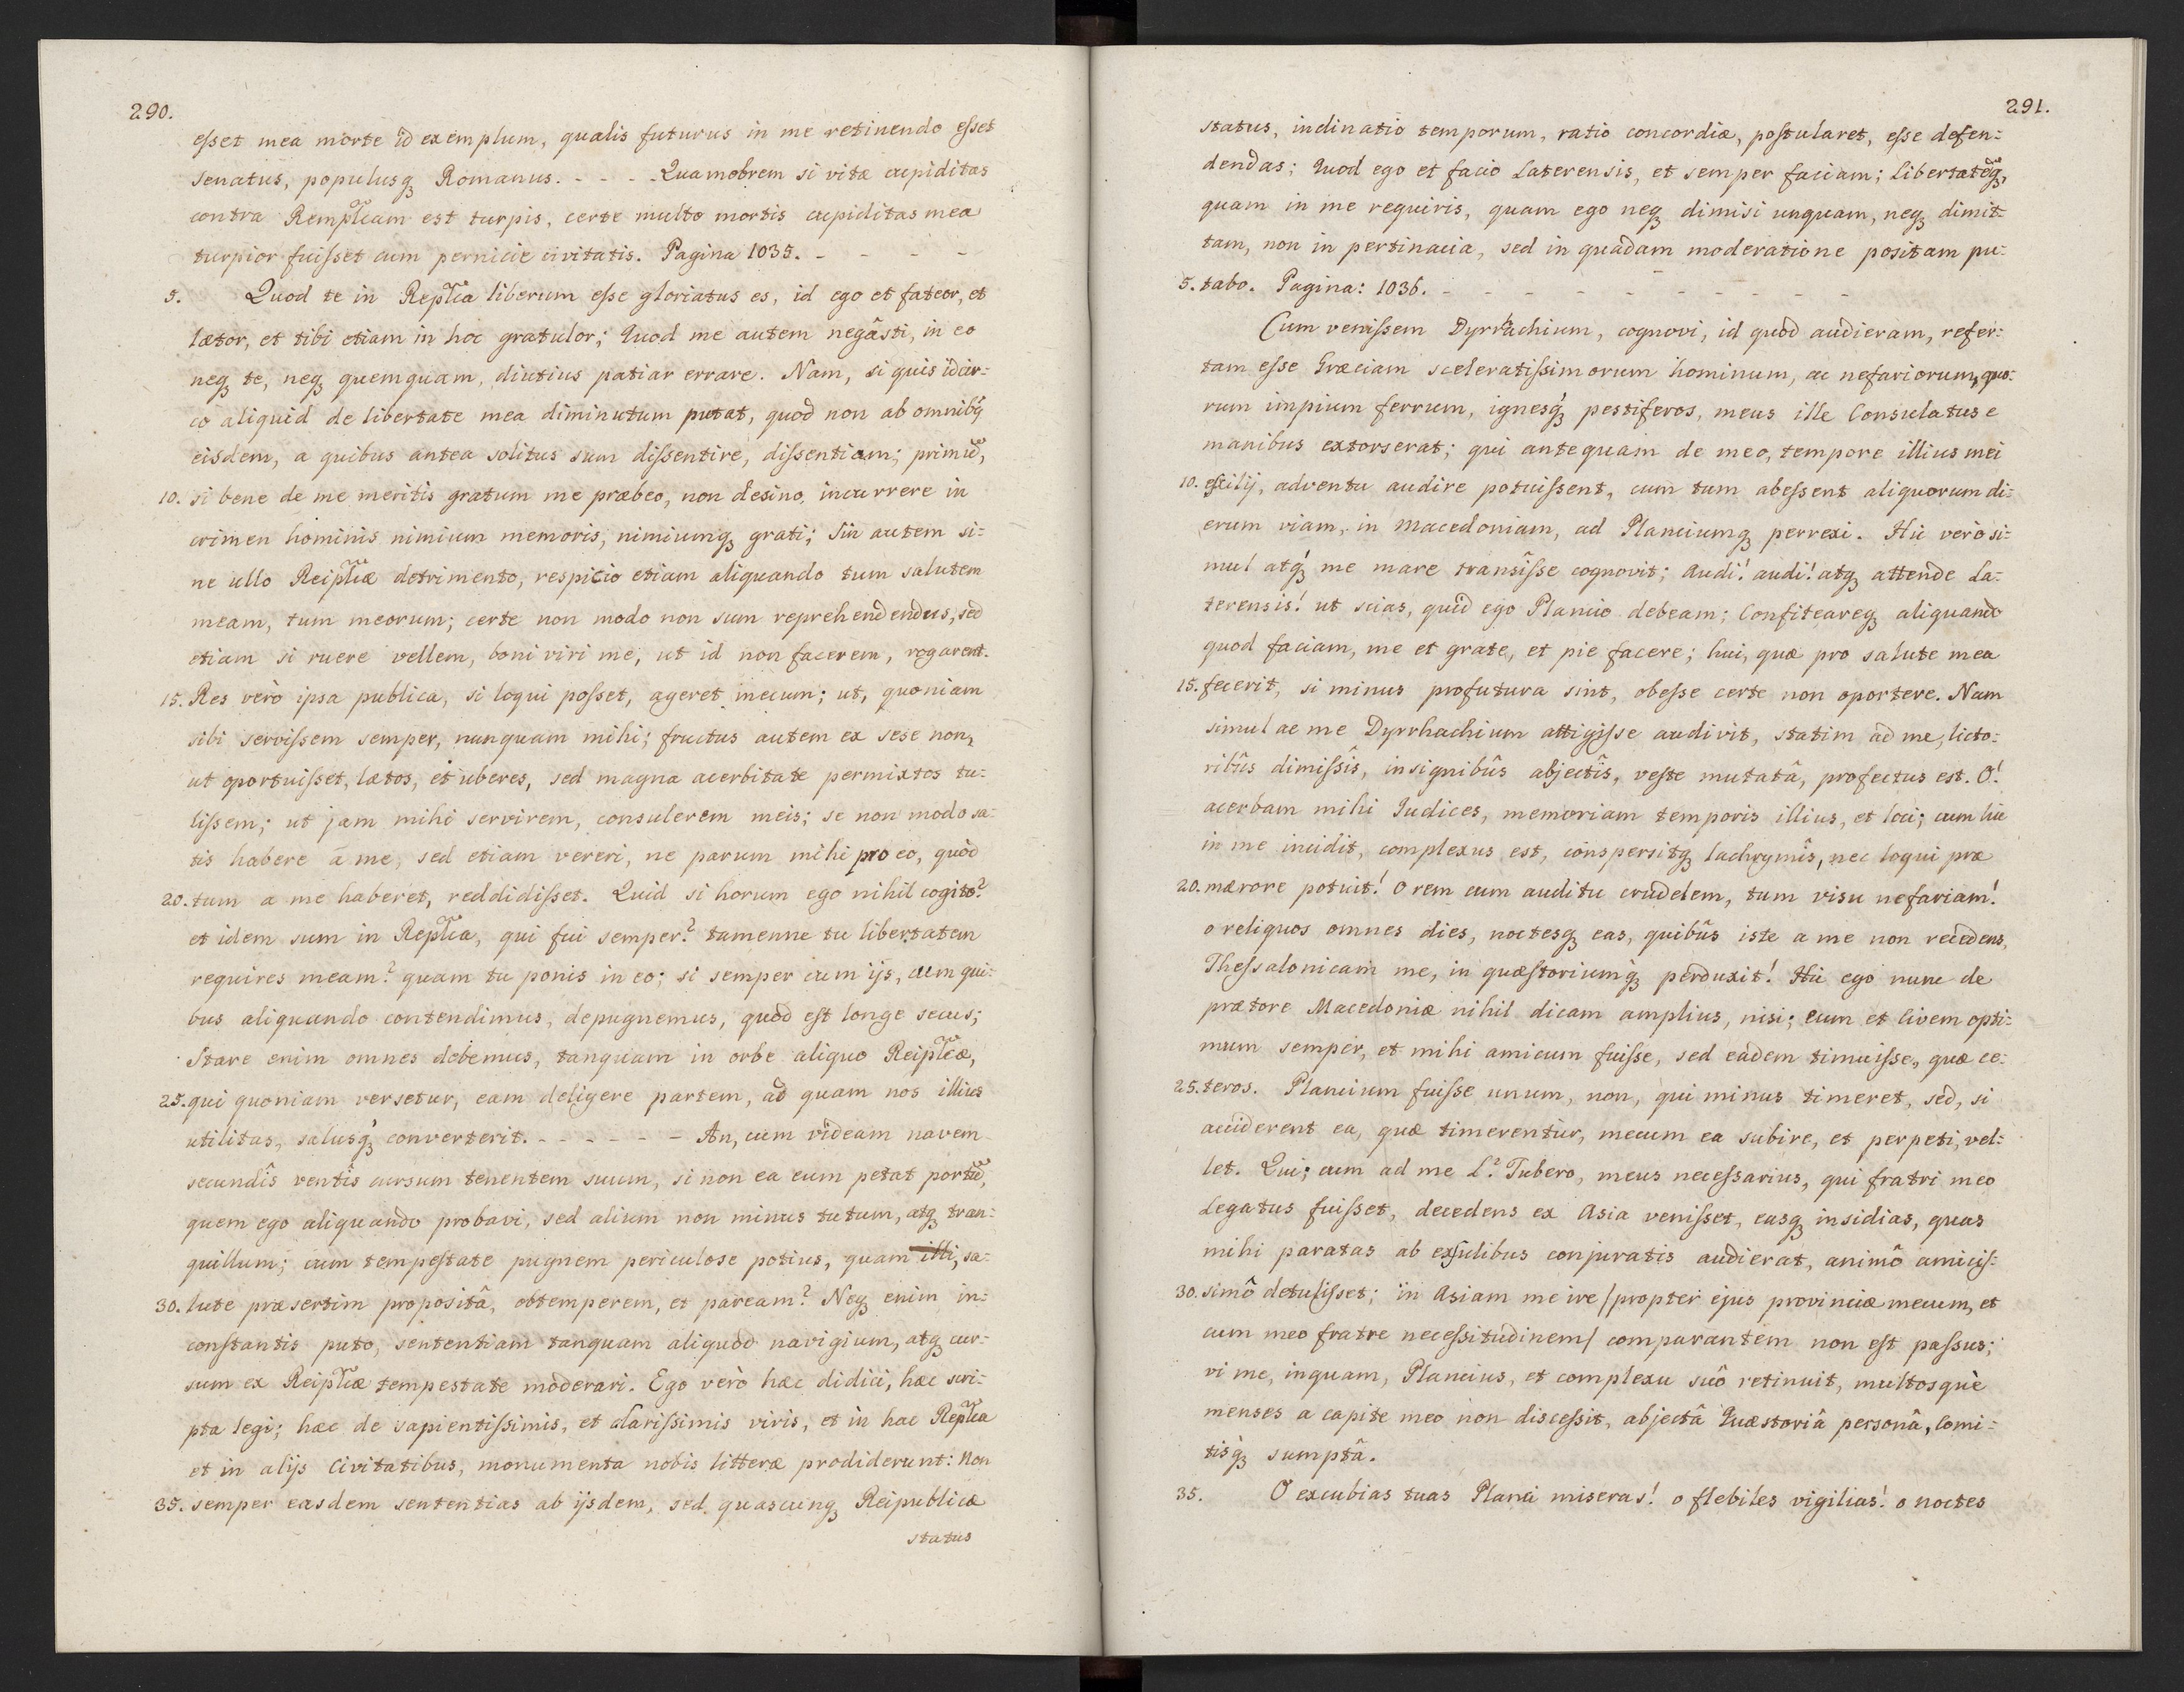 290.
esset mea morte id exemplum, qualis futurus in me retinendo esset
senatus, populusq̃ Romanus. - - - - Quamobrem si vitæ cupiditas
contra Rempl̃cam est turpis, certe multo mortis cupiditas mea
turpior fuisset cum pernicie civitatis. Pagina 1035. - - - -
5. Quod te in Repl̃ca liberum esse gloriatus es, id ego et fateor, et
lætor, et tibi etiam in hoc gratulor; Quod me autem negâsti, in eo
neq̃ te, neq̃ quemquam, diutius patiar errare. Nam, si quis idcir=
co aliquid de libertate mea diminutum putat, quod non ab omnibq̃
eisdem, a quibus antea solitus sum dissentire, dissentiam; primũ,
10. si bene de me meritis gratum me præbeo, non desino incurrere in
crimen hominis nimium memoris, nimiumq̃ grati; Sin autem si=
ne ullo Reipl̃cæ detrimento, respicio etiam aliquando tum salutem
meam, tum meorum; certe non modo non sum reprehendendus, sed
etiam si ruere vellem, boni viri me, ut id non facerem, rogarent.
15. Res verò ipsa publica, si loqui posset, ageret mecum; ut, quoniam
sibi servissem semper, nunquam mihi; fructus autem ex sese non,
ut oportuisset, lætos, et uberes, sed magna acerbitate permixtos tu=
lissem; ut jam mihi servirem, consulerem meis; se non modo sa=
tis habere à me, sed etiam vereri, ne parum mihi pro eo, quòd
20. tum a me haberet, reddidisset. Quid si horum ego nihil cogito?
et idem sum in Repl̃ca, qui fui semper? tamenne tu libertatem
requires meam? quam tu ponis in eo; si semper cum ijs, cum qui=
bus aliquando contendimus, depugnemus, quod est longe secus;
Stare enim omnes debemus, tanquam in orbe aliquo Reipl̃cæ,
25. qui quoniam versetur, eam deligere partem, ad quam nos illius
utilitas, salusq̃ converterit. - - - - - - An, cum videam navem
secundîs ventîs cursum tenentem suum, si non ea eum petat portũ,
quem ego aliquando probavi, sed alium non minus tutum, atq̃ tran=
quillum; cum tempestate pugnem periculose potius, quam illi, sa=
30. lute præsertim propositâ, obtemperem, et paream? Neq̃ enim in=
constantis puto, sententiam tanquam aliquod navigium, atq̃ cur=
sum ex Reipl̃cæ tempestate moderari. Ego verò hæc didici, hæc scri=
pta legi; hæc de sapientissimis, et clarissimis viris, et in hac Repl̃ca
et in alijs Civitatibus, monumenta nobis litteræ prodiderunt: Non
35. semper easdem sententias ab ijsdem, sed quascunq̃ Reipublicæ
status
291.
status, inclinatio temporum, ratio concordiæ, postularet, esse defen=
dendas; Quod ego et facio Laterensis, et semper faciam; Libertatẽq̃,
quam in me requiris, quam ego neq̃ dimisi unquam, neq̃ dimit=
tam, non in pertinacia, sed in quadam moderatione positam pu=
5. tabo. Pagina: 1036. - - - - - - - - - -
Cum venissem Dyrrachium, cognovi, id quod audieram, refer=
tam esse Græciam sceleratissimorum hominum, ac nefariorum, quo=
rum impium ferrum, ignesq̃ pestiferos, meus ille Consulatus e
manibus extorserat; qui antequam de meo, tempore illius mei
10. exilij, adventu audire potuissent, cum tum abessent aliquorum di=
erum viam, in Macedoniam, ad Planciumq̃ perrexi. Hic verò si=
mul atq̃ me mare transîsse cognovit; Audi! audi! atq̃ attende La=
terensis! ut scias, quid ego Plancio debeam; Confiteareq̃ aliquando
quod faciam, me et grate, et pie facere; hui, quæ pro salute mea
15. fecerit, si minus profutura sint, obesse certe non oportere. Nam
simul ac me Dyrrhachium attigisse audivit, statim ad me, licto=
ribûs dimissîs, insignibûs abjectîs, veste mutatâ, profectus est. O!
acerbam mihi Judices, memoriam temporis illius, et loci; cum hic
in me incidit, complexus est, conspersitq̃ lachrymîs, nec loqui præ
20. mærore potuit! O rem cum auditu crudelem, tum visu nefariam!
o reliquos omnes dies, noctesq̃ eas, quibûs iste a me non recedens,
Thessalonicam me, in quæstoriumq̃ perduxit! Hic ego nunc de
prætore Macedoniæ nihil dicam amplius, nisi; eum et civem opti=
mum semper, et mihi amicum fuisse, sed eadem timuisse, quæ ce=
25. teros. Plancium fuisse unum, non, qui minus timeret, sed, si
acciderent ea, quæ timerentur, mecum ea subire, et perpeti, vel=
let. Qui; cum ad me L. Tubero, meus necessarius, qui fratri meo
Legatus fuisset, decedens ex Asia venisset, easq̃ insidias, quas
mihi paratas ab exsulibus conjuratis audierat, animô amicis=
30. simô detulisset; in Asiam me ire /propter ejus provinciæ mecum, et
cum meo fratre necessitudinem/ comparantem non est passus;
vi me, inquam, Plancius, et complexu suô retinuit, multosquè
menses a capite meo non discessit, abjectâ Quæstoriâ personâ, Comi=
tisq̃ sumptâ.
35. O excubias tuas Planci miseras! o flebiles vigilias! o noctes